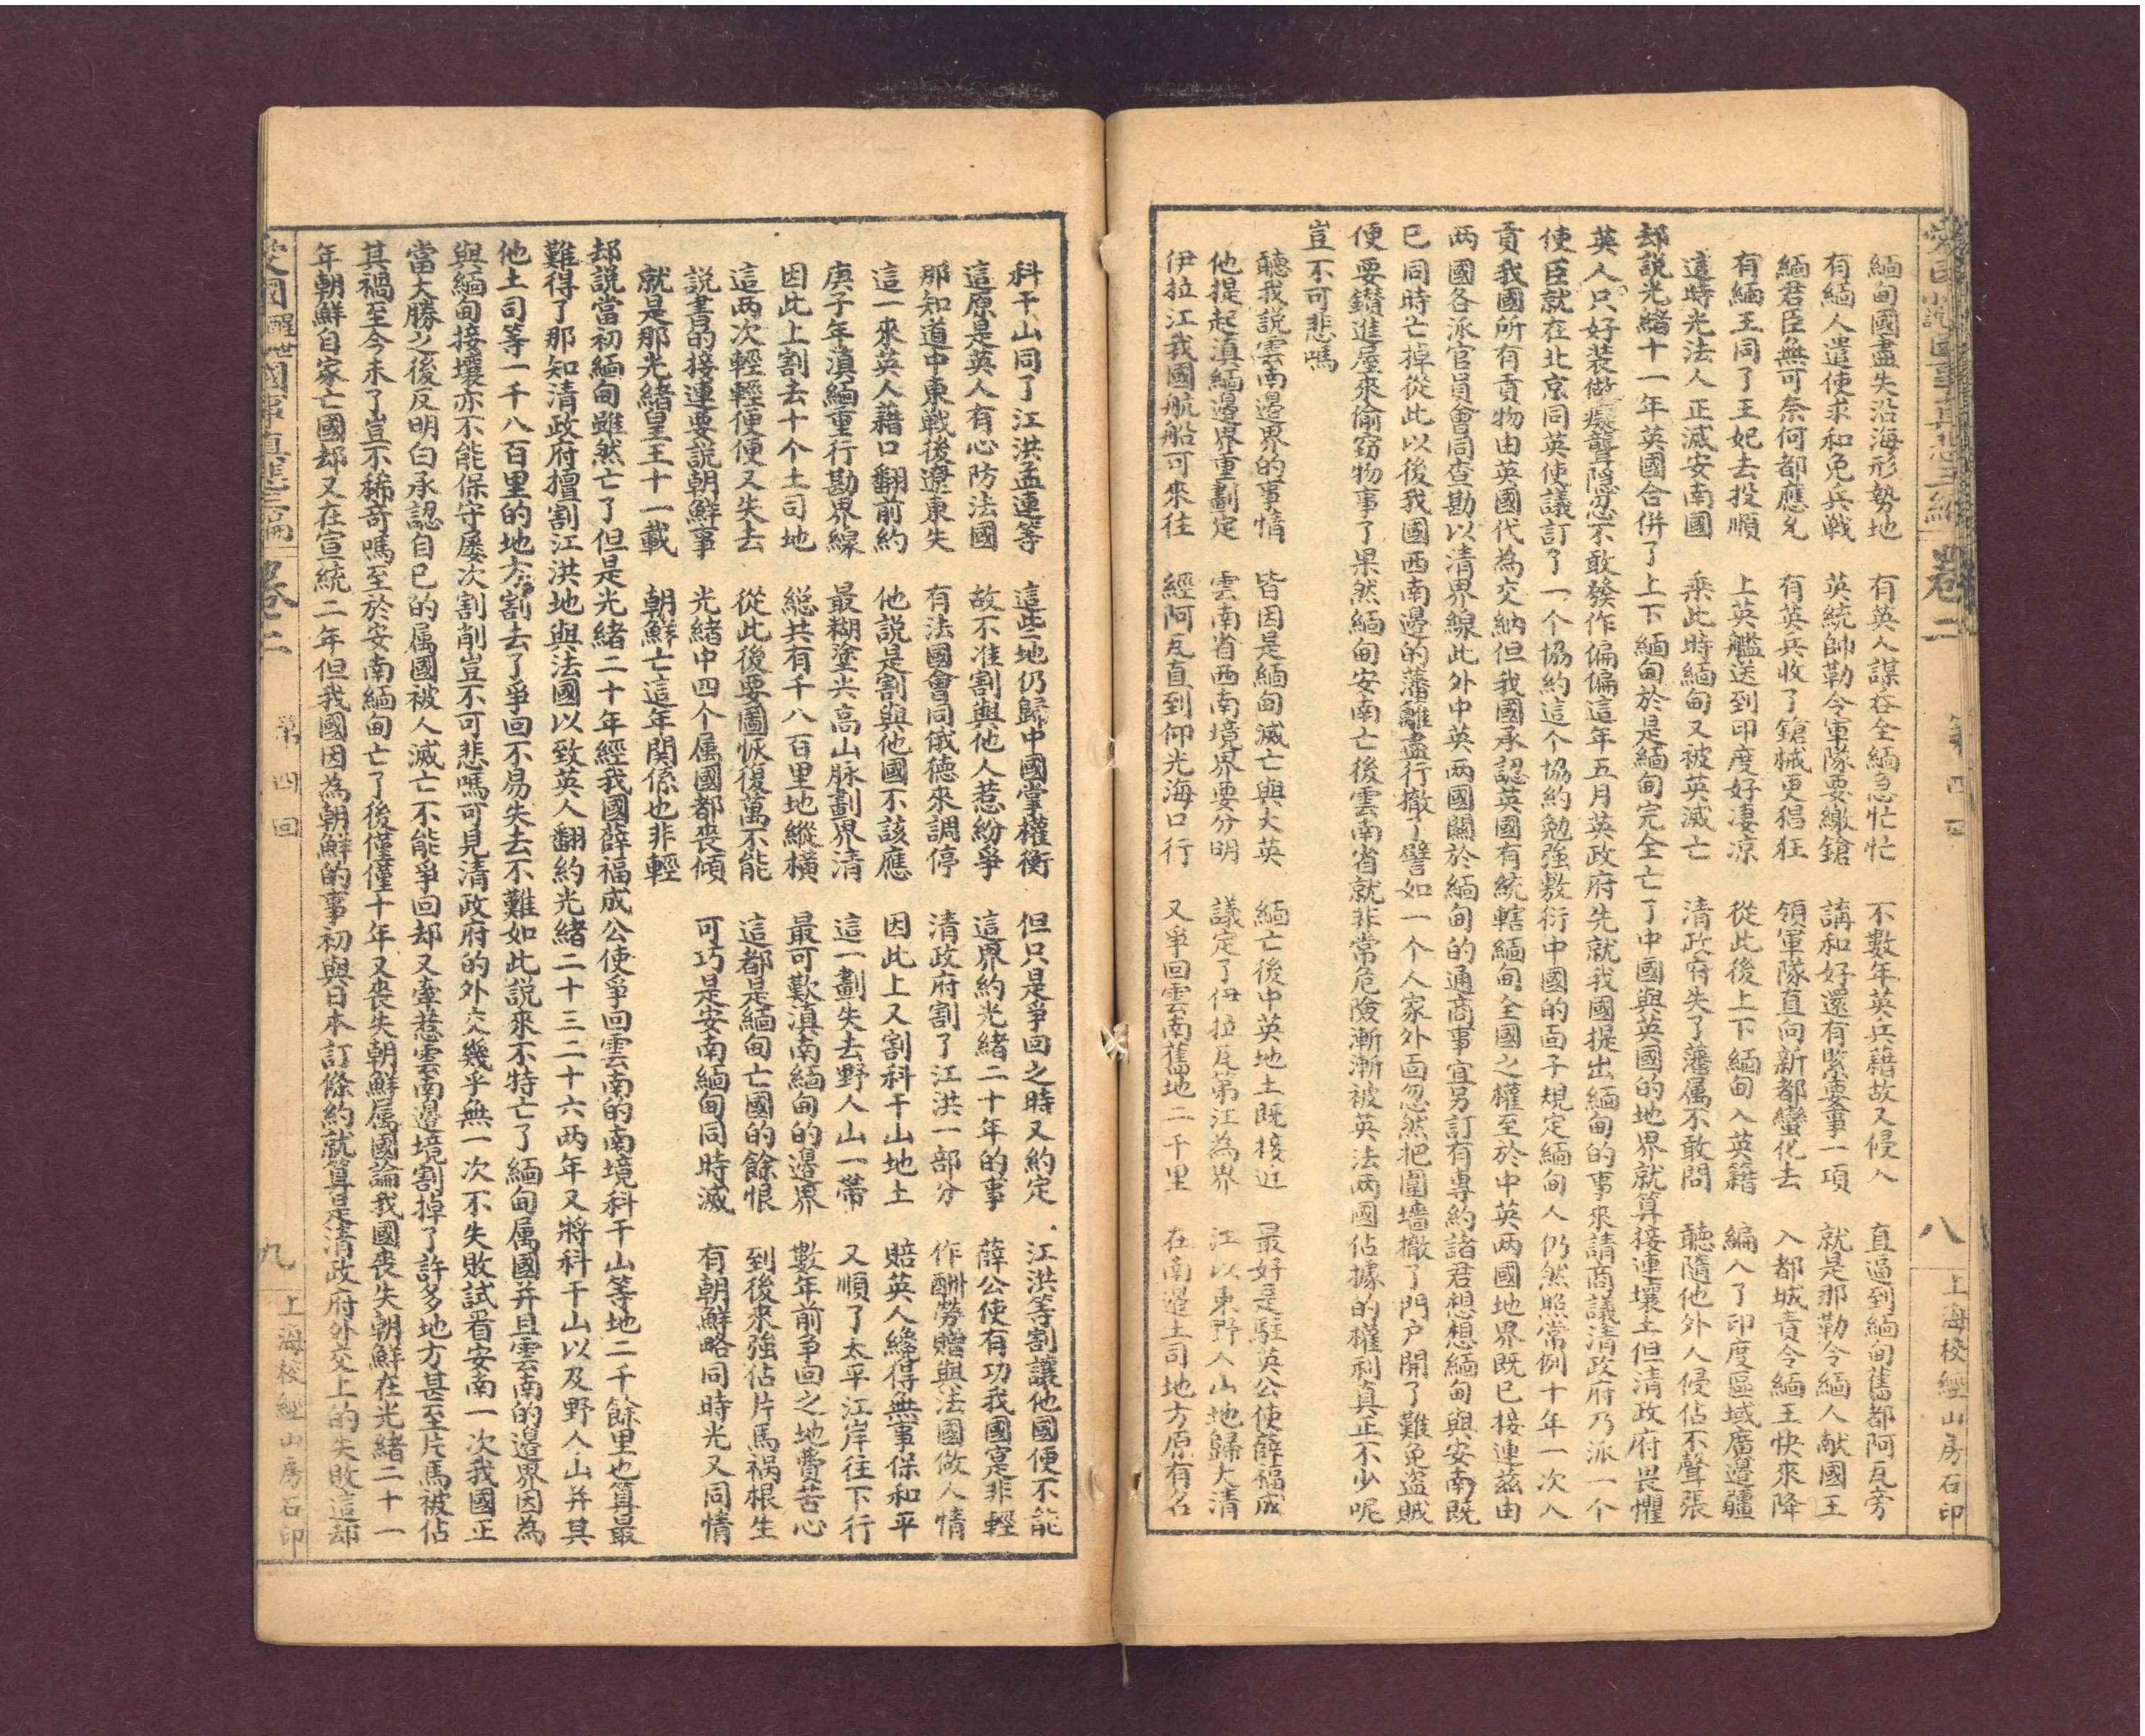 緬甸國盡失沿海形勢地　有英人謀吞全緬急忙忙　不數年英兵藉故又侵入　直逼到緬甸舊都阿瓦旁
有緬人遣使求和免兵戰　英統帥勒令軍隊要繳鎗　講和好還有緊要事一項　就是那勒令緬人献國王
緬君臣無可奈何都應允　有英兵收了鎗械更猖狂　領軍隊直向新都蠻化去　入都城責令緬王快來降
有緬王同了王妃去投順　上英艦送到印度好凄凉　從此後上下緬甸入英籍　編入了印度區域廣邊疆
這時光法人正滅安南國　乘此時緬甸又被英滅亡　清政府失了藩属不敢問　聽隨他外人侵佔不聲張
却說光緒十一年英國合併了上下緬甸於是緬甸完全亡了中國與英國的地界就算接連壤土但清政府畏懼
英人只好装做癡聾隱忍不敢發作偏偏這年五月英政府先就我國提出緬甸的事來請商議清政府乃派一个
使臣就在北京同英使議訂了一个協約這个協約勉強敷衍中國的面子規定緬甸人仍然照常例十年一次入
貢我國所有貢物由英國代為交納但我國承認英國有統轄緬甸全國之權至於中英两國地界既已接連茲由
两國各派官員會同查勘以清界線此外中英两國關於緬甸的通商事宜另訂有專約諸君想想緬甸與安南既
已同時亡掉從此以後我國西南邊的藩籬盡行撤了譬如一个人家外面忽然把圍墻撤了門户開了難免盗賊
便要鑚進屋來偷窃物事了果然緬甸安南亡後雲南省就非常危險漸漸被英法两國佔據的權利真正不少呢
豈不可悲嗎
聽我說雲南邊界的事情　皆因是緬甸滅亡與大英　緬亡後中英地土既接近　最好是駐英公使薛福成
他提起滇緬邊界重劃定　雲南省西南境界要分明　議定了伊拉瓦第江為界　江以東野人山地歸大清
伊拉江我國航船可來往　經阿瓦直到仰光海口行　又爭回雲南舊地二千里　在南邊土司地方原有名
愛國小說國事真悲 卷二 第四回 八 上海校經山房石印
科干山同了江洪孟連等　這些地仍歸中國掌權衡　但只是爭回之時又約定　江洪等割讓他國便不能
這原是英人有心防法國　故不准割與他人惹紛爭　這界約光緒二十年的事　薛公使有功我國寔非輕
那知道中東戰後遼東失　有法國會同俄德來調停　清政府割了江洪一部分　作酬勞贈與法國做人情
這一來英人藉口翻前約　他說是割與他國不該應　因此上又割科干山地土　賠英人纔得無事保和平
庚子年滇緬重行勘界線　最糊塗尖高山脉劃界清　這一劃失去野人山一帶　又順了太平江岸往下行
因此上割去十个土司地　緫共有千八百里地縱横　最可歎滇南緬甸的邊界　數年前争回之地費苦心
這两次輕輕便便又失去　從此後要圖恢復萬不能　這都是緬甸亡國的餘恨　到後來強佔片馬禍根生
說書的接連要說朝鮮事　光緒中四个属國都喪傾　可巧是安南緬甸同時滅　有朝鮮略同時光又同情
就是那光緒皇王十一載　朝鮮亡這年関係也非輕
却說當初緬甸雖然亡了但是光緒二十年經我國薛福成公使爭回雲南的南境科干山等地二千餘里也算最
難得了那知清政府擅割江洪地與法國以致英人翻約光緒二十三二十六两年又將科干山以及野人山并其
他土司等一千八百里的地方割去了爭回不易失去不難如此說來不特亡了緬甸属國并且雲南的邊界因為
與緬甸接壤亦不能保守屡次割削豈不可悲嗎可見清政府的外交幾乎無一次不失敗試看安南一次我國正
當大勝之後反明白承認自已的属國被人滅亡不能爭回却又牽惹雲南邊境割掉了許多地方甚至片馬被佔
其禍至今未了豈不稀奇嗎至於安南緬甸亡了後僅僅十年又喪失朝鮮属國論我國喪失朝鮮在光緒二十一
年朝鮮自家亡國却又在宣統二年但我國因為朝鮮的事初與日本訂條約就算是清政府外交上的失敗這却
愛國醒世國事真悲 卷二 第四回 九 上海校經山房石印